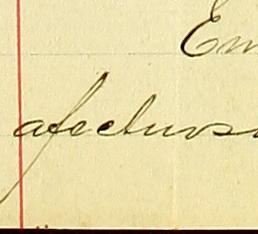 Em
afectuos